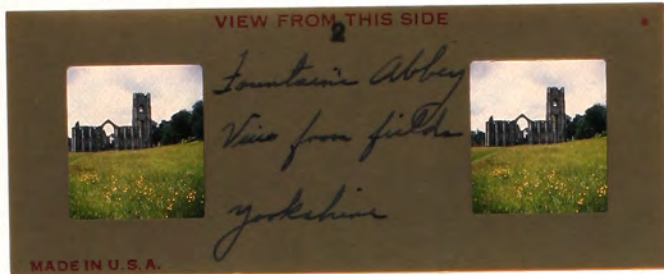 VIEW FROM THIS SIDE
2
Fountain's Abbey
View from fields
Yorkshire
MADE IN U.S.A.